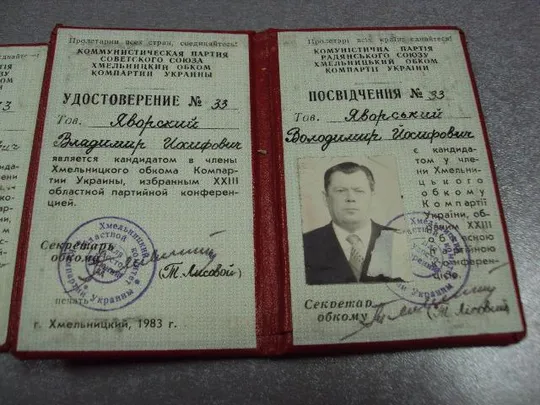 Пролетарии всех стран, соединяйтесь!
КОММУНИСТИЧЕСКАЯ ПАРТИЯ
СОВЕТСКОГО СОЮЗА
ХМЕЛЬНИЦКИЙ ОБКОМ
КОМПАРТИИ УКРАИНЫ
УДОСТОВЕРЕНИЕ № 33
Тов. Яворский
Владимир Иосифович
является кандидатом в члены
Хмельницкого обкома Компар-
тии Украины, избранным XXIII
областной партийной конферен-
цией.
Секретарь
обкома
(Т. Лисовой)
печать
г. Хмельницкий, 1983 г.
Пролетарі всіх країн, єднайтеся!
КОМУНІСТИЧНА ПАРТІЯ
РАДЯНСЬКОГО СОЮЗУ
ХМЕЛЬНИЦЬКИЙ ОБКОМ
КОМПАРТІЇ УКРАЇНИ
ПОСВІДЧЕННЯ № 33
Тов. Яворський
Володимир Иосифович
є кандида-
том у чле-
ни Хмельни-
цького
обкому
Компартії
України, об-
раним XXIII
обласною
конферен-
Секретар
обкому
(Т. Лісовий)